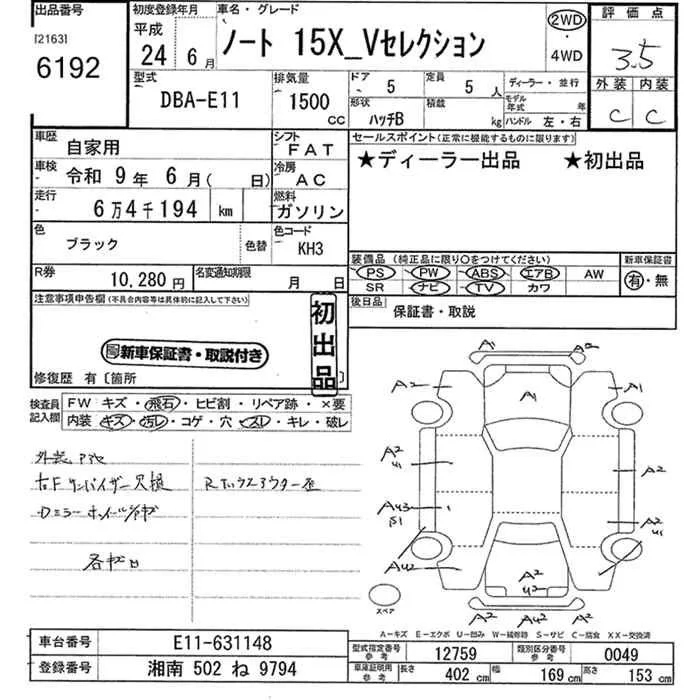 出品番号 初度登録年月 車名・グレード 評価点
[2163] 平成 ノート 15X_Vセレクション 2WD 3.5
6192 24年 6月 4WD 外装 内装
型式 排気量 ドア 5 定員 5人 ディーラー・並行 C C
DBA-E11 1500cc 形状 ハッチB 積載 kg モデル年式 年 ハンドル 左・右
車歴 自家用 シフト FAT セールスポイント(正常に機能するものに限ります)
車検 令和 9年 6月( 日) 冷房 AC ★ディーラー出品 ★初出品
走行 6万4千194 km 燃料 ガソリン
色 ブラック 色替 色コード KH3
装備品(純正品に限り○をつけてください) 新車保証書
PS PW ABS エアB AW 有・無
SR ナビ TV カワ
R券 10,280円 名変通知期限 月 日
後日品 保証書・取説
注意事項申告欄(不具合内容等は具体的に記入して下さい)
初出品
新車保証書・取説付き
修復歴 有〔箇所 〕
検査員記入欄 FW キズ・飛石・ヒビ割・リペア跡・×要
内装 キズ・汚レ・コゲ・穴・スレ・キレ・破レ
右Fサンバイザー欠損
各キロ
A1 A2
A2 A1
A2 U1 A2
AU3 S1 A2 U1
AU2 A2 U2
A2 AU2 A2
スペア
A-キズ E-エクボ U-凹み W-補修跡 S-サビ C-腐食 XX-交換済
車台番号 E11-631148 型式指定番号 参考 12759 類別区分番号 参考 0049
登録番号 湘南 502 ね 9794 車庫証明用 参考 長さ 402 cm 幅 169 cm 高さ 153 cm